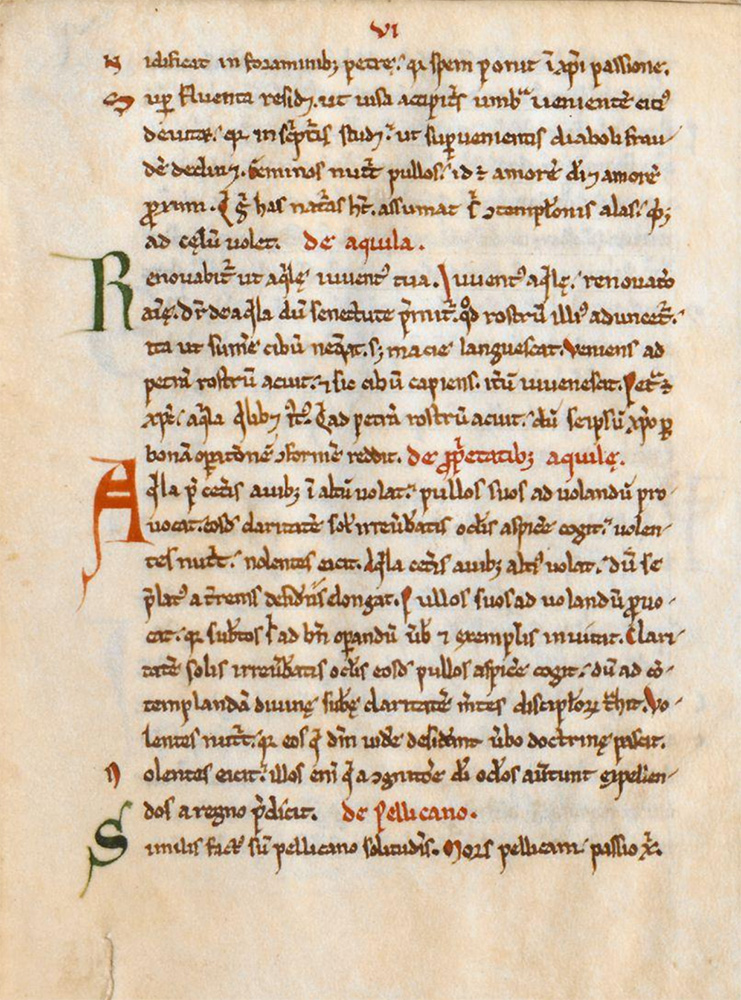 VI
Nidificat in foraminibꝫ petrę. qꝛ spem ponit ī xp̄i passione.
Sup̄ fluenta residꝫ. ut uisa accipit̄s umbᵃ ueniente cit᷒
deuitꝫ. qꝛ in scⁱptⁱs studꝫ. ut sup̄uenientis diaboli frau
dē declinꝫ. Geminos nut̄t pullos. id ē amorē di̅ ⁊ amorē
ꝓximi. Qⁱ gͦ has natᵃs h̄t. assumat s̄ ↄtemplōnis alas. qⁱbꝫ
ad cęlū uolet. de aquila.
Renouabit̄ ut aqⁱlę iuuent᷒ tua. Iuuent᷒ aqⁱlę. renouatō
aīę. Dr̄ de aqⁱla dū senectute p̄mit̄. qd̄ rostrū illi᷒ aduncet̄.
ita ut sumē cibū neqᵃt. sꝫ macie languescat. Veniens ad
petrā rostrū acuit. ⁊ sic cibū capiens. itū iuuenescit. Petᵃ ē
xp̄c. aqⁱla qⁱlibꝫ iust᷒. Qⁱ ad petrā rostrū acuit. dū seipsū xp̄o ꝑ
bonā opatōnē ↄformē reddit. de ꝓprⁱetatibꝫ aquilę.
Aqⁱla p̄ cet̄is auibꝫ ī altū uolat. pullos suos ad uolandū pro
uocat. eosdē claritatē sol̄ irreūbatis oclīs aspicē cogit. uolen
tes nut̄t. nolentes eicit. Aqⁱla cet̄is auibꝫ alti᷒ uolat. dū se
p̄lat᷒ a tr̄renis desideriis elongat. Pullos suos ad uolandū ꝓuo
cat. qꝛ sub̄tos s̄ ad bn̄ opandū ūb ⁊ exemplis inuitat. Clari
tatē solis irreūbatis oclīs eosdē pullos aspicē cogit. dū ad cō
templandā diuinę sub̄ę claritatē m̄tes discipl̄oꝝ t̄hit. Vo
lentes nut̄t. qꝛ eos qⁱ dm̄ uidē desid̄ant ūbo doctrinę pascit.
Nolentes eicit. illos enī qⁱ a ↄgnitōe di̅ oclōs aūtunt expellen
dos a regno p̄dicit. de Pellicano.
Similis fact᷒ sū pellicano solitudīs. Mors pellicani passio x̄i.